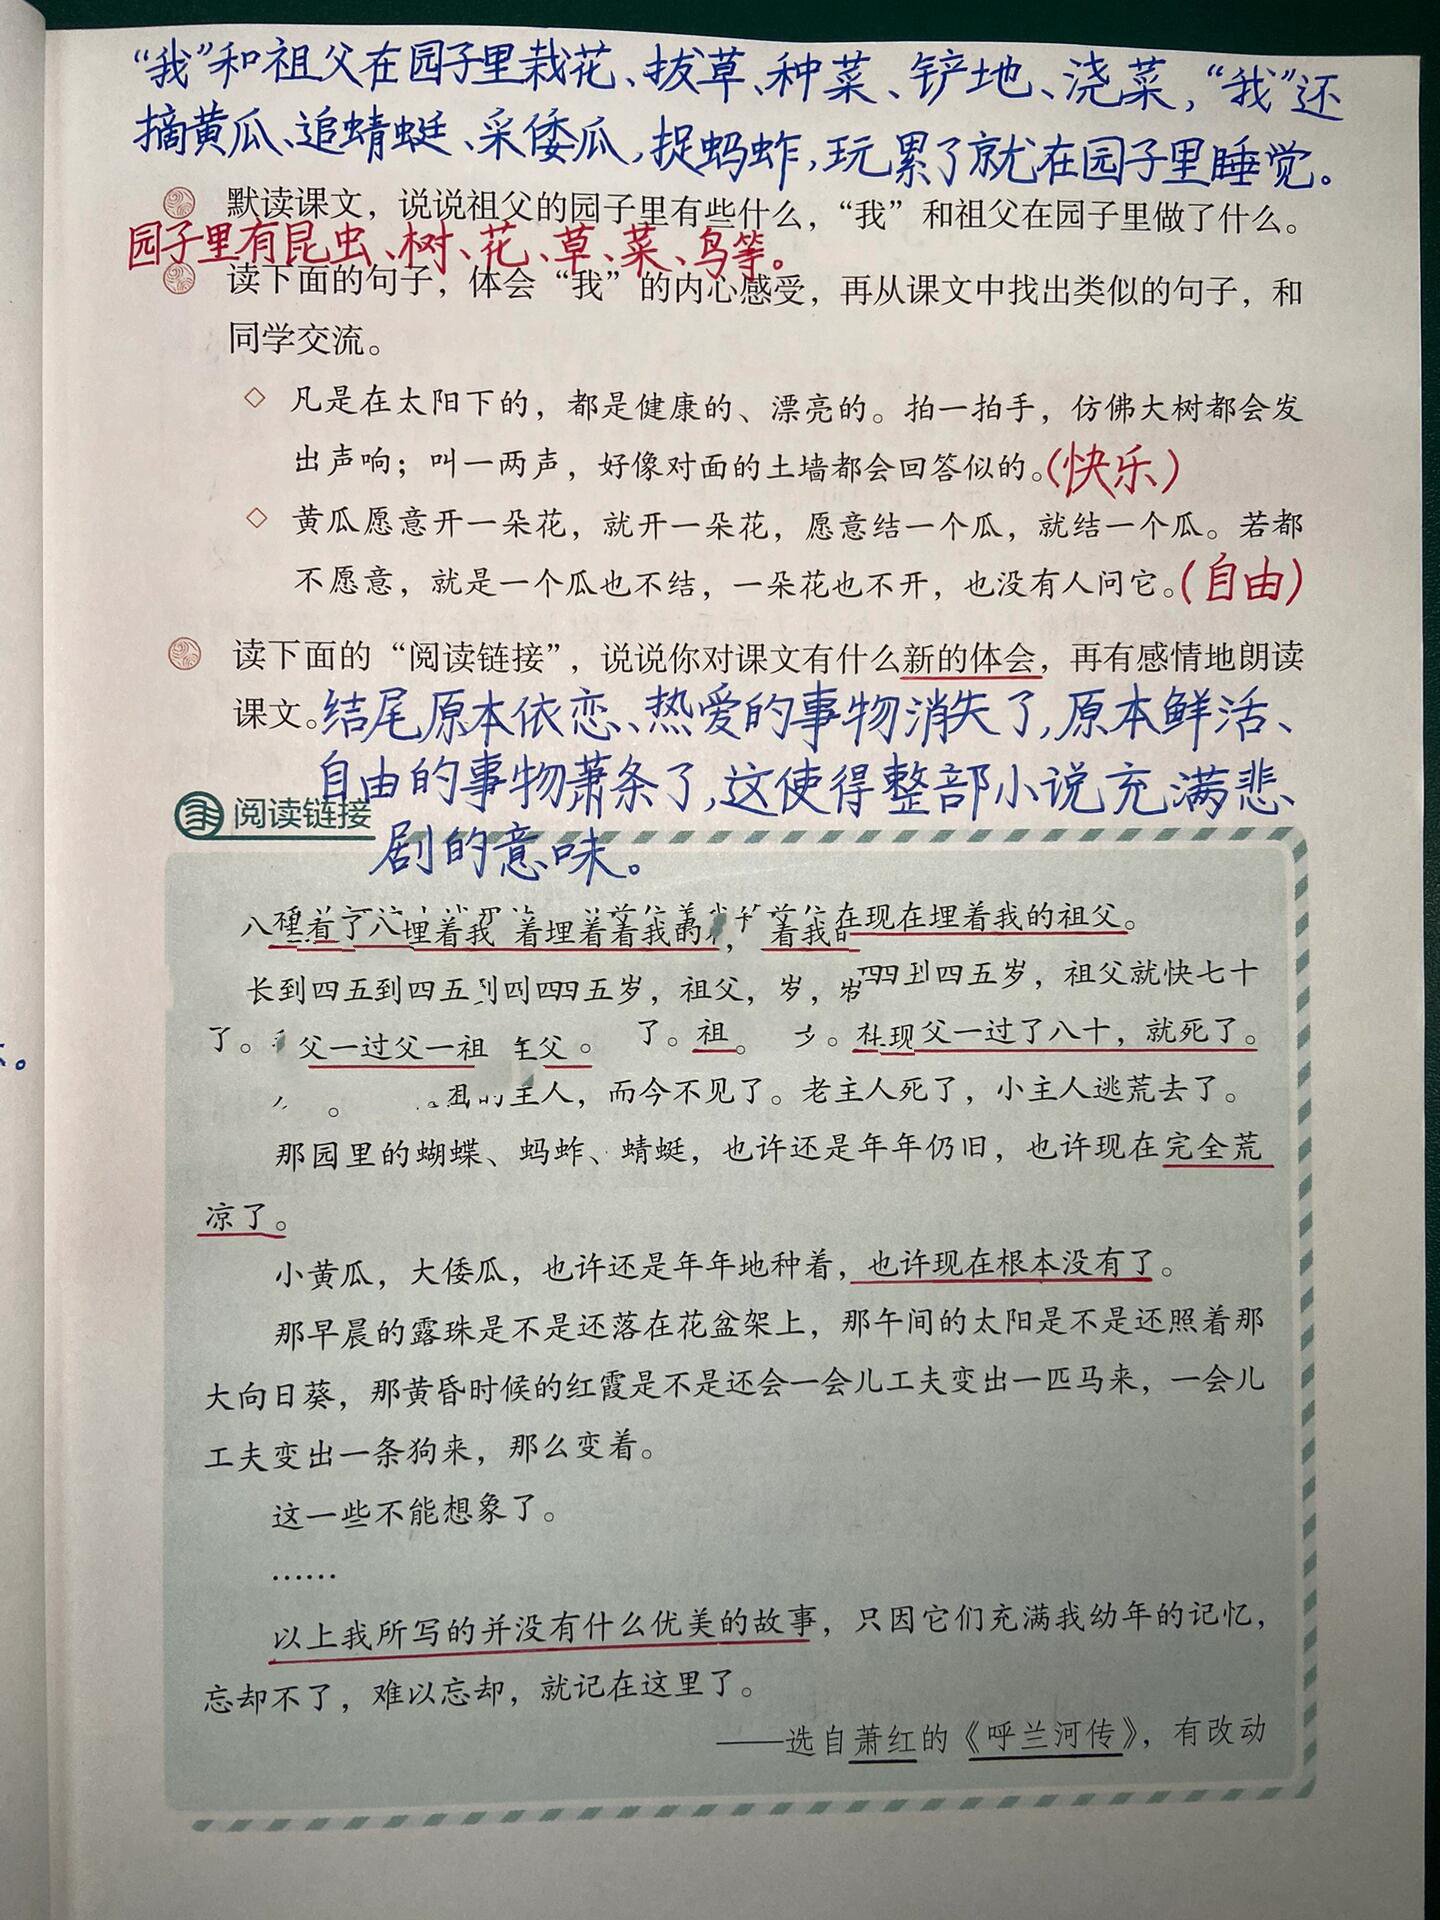 “我”和祖父在园子里栽花、拔草、种菜、铲地、浇菜，“我”还
摘黄瓜、追蜻蜓、采倭瓜，捉蚂蚱，玩累了就在园子里睡觉。
默读课文，说说祖父的园子里有些什么，“我”和祖父在园子里做了什么。
园子里有昆虫、树、花、草、菜、鸟等。
读下面的句子，体会“我”的内心感受，再从课文中找出类似的句子，和
同学交流。
◇ 凡是在太阳下的，都是健康的、漂亮的。拍一拍手，仿佛大树都会发
出声响；叫一两声，好像对面的土墙都会回答似的。(快乐)
◇ 黄瓜愿意开一朵花，就开一朵花，愿意结一个瓜，就结一个瓜。若都
不愿意，就是一个瓜也不结，一朵花也不开，也没有人问它。(自由)
读下面的“阅读链接”，说说你对课文有什么新的体会，再有感情地朗读
课文。结尾原本依恋、热爱的事物消失了，原本鲜活、
自由的事物萧条了，这使得整部小说充满悲
剧的意味。
阅读链接
在现在埋着我的祖父。
长到四五到四五 四五岁，祖父，岁， 到四五岁，祖父就快七十
了。 父一过父一祖 父。 了。祖。 父一过了八十，就死了。
主人，而今不见了。老主人死了，小主人逃荒去了。
那园里的蝴蝶、蚂蚱、蜻蜓，也许还是年年仍旧，也许现在完全荒
凉了。
小黄瓜，大倭瓜，也许还是年年地种着，也许现在根本没有了。
那早晨的露珠是不是还落在花盆架上，那午间的太阳是不是还照着那
大向日葵，那黄昏时候的红霞是不是还会一会儿工夫变出一匹马来，一会儿
工夫变出一条狗来，那么变着。
这一些不能想象了。
……
以上我所写的并没有什么优美的故事，只因它们充满我幼年的记忆，
忘却不了，难以忘却，就记在这里了。
——选自萧红的《呼兰河传》，有改动